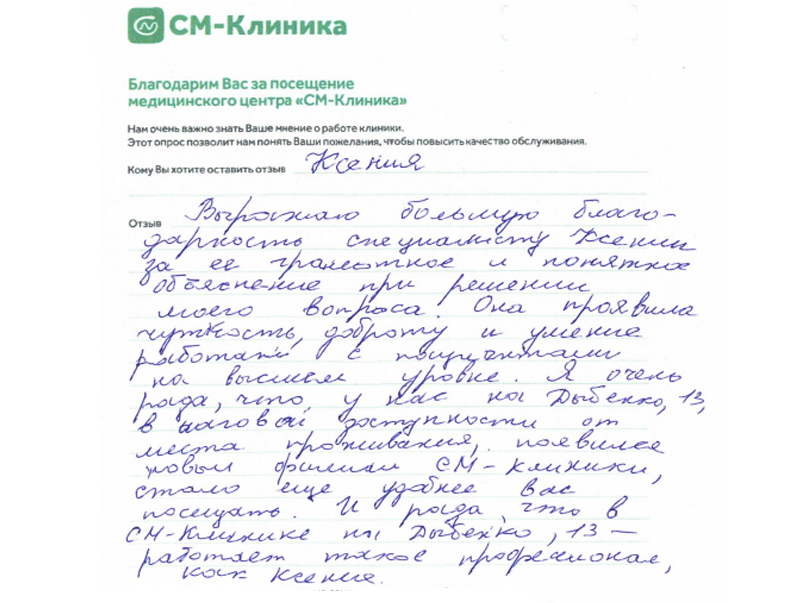 СМ-Клиника
Благодарим Вас за посещение
медицинского центра «СМ-Клиника»
Нам очень важно знать Ваше мнение о работе клиники.
Этот опрос позволит нам понять Ваши пожелания, чтобы повысить качество обслуживания.
Кому Вы хотите оставить отзыв Ксения
Отзыв Выражаю большую благо-
дарность специалисту Ксении
за её грамотное и понятное
объяснение при решении
моего вопроса. Она проявила
чуткость, доброту и умение
работать с пациентами
на высшем уровне. Я очень
рада, что у нас на Дыбенко, 13,
в шаговой доступности от
места проживания, появился
новый филиал СМ-Клиники,
стало ещё удобнее вас
посещать. И рада, что в
СМ-Клинике на Дыбенко, 13 —
работает такой профессионал,
как Ксения.